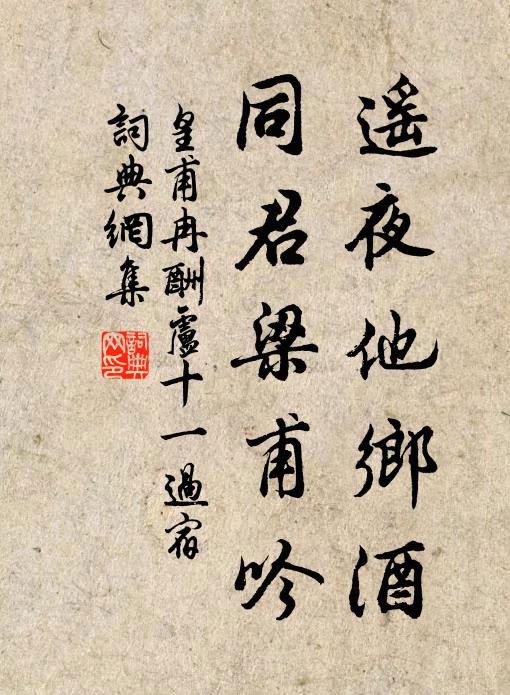 遥夜他鄉酒
同君梁甫吟
皇甫冉酬盧十一過宿
詞典網集
詞典
网印